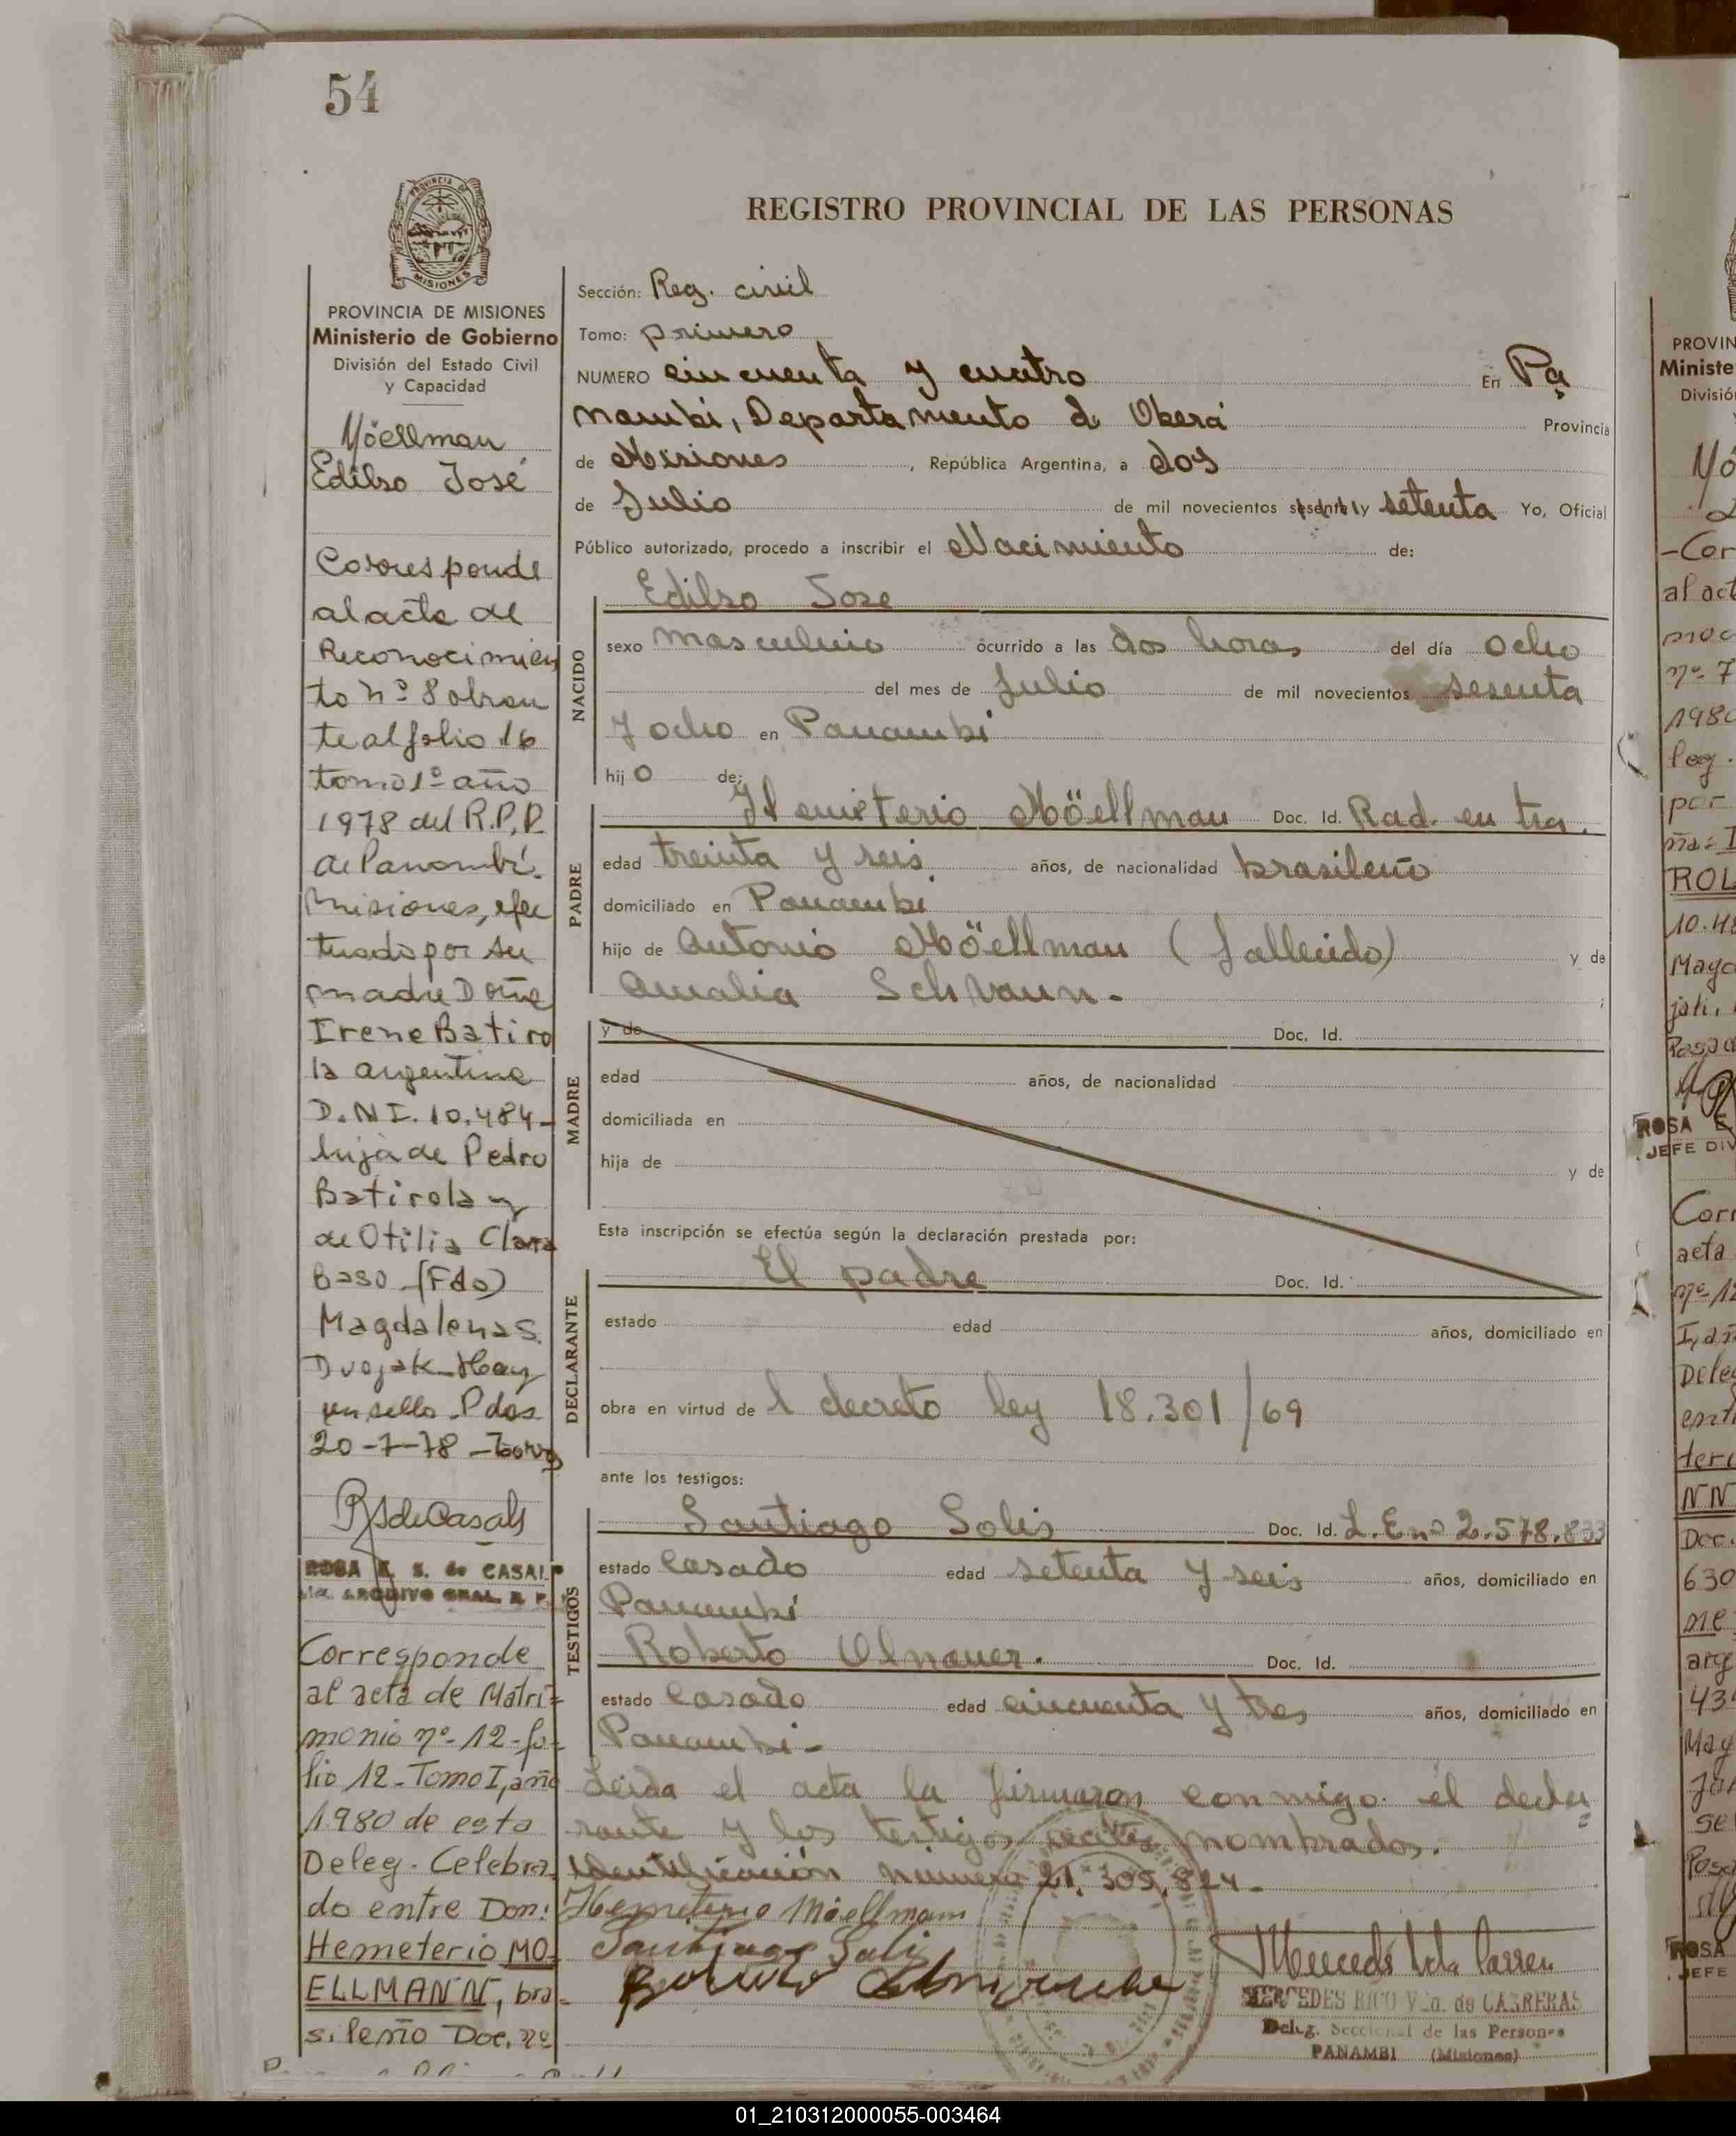 54
PROVINCIA DE MISIONES
Ministerio de Gobierno
División del Estado Civil
y Capacidad
Möellman
Edilso José
Corresponde
al acta de
Reconocimien
to nº 8 obran
te al folio 16
tomo 1º año
1978 del R.P.P.
de Panambí.
Misiones, efec
tuado por su
madre Doña
Irene Batiro
la argentina
D.N.I. 10.484-
hija de Pedro
Batirola y
de Otilia Clara
Baso (Fdo)
Magdalena S.
Dvojak-Hay
un sello. Pdas
20-7-78
ROSA E. S. de CASAL
ARCHIVO GRAL. R. P.
Corresponde
al acta de Matri-
monio nº-12-fo-
lio 12-Tomo I, año
1980 de esta
Deleg. Celebra-
do entre Don:
Hemeterio MO-
ELLMANN, bra-
sileño Doc. nº
REGISTRO PROVINCIAL DE LAS PERSONAS
Sección: Reg. civil
Tomo: primero
NUMERO cincuenta y cuatro En Pa
nambí, Departamento de Oberá Provincia
de Misiones, República Argentina, a dos
de Julio de mil novecientos sesenta y setenta Yo, Oficial
Público autorizado, procedo a inscribir el Nacimiento de:
NACIDO
Edilso Jose
sexo masculino ocurrido a las dos horas del día ocho
del mes de Julio de mil novecientos sesenta
y ocho en Panambí
hijo de:
PADRE
Hemeterio Möellman Doc. Id. Rad. en tra.
edad treinta y seis años, de nacionalidad brasileño
domiciliado en Panambí
hijo de Antonio Möellman (fallecido) y de
Amalia Schvaun.- ;
MADRE
y de Doc. Id.
edad años, de nacionalidad
domiciliada en
hija de y de
Esta inscripción se efectúa según la declaración prestada por:
DECLARANTE
El padre Doc. Id.
estado edad años, domiciliado en
obra en virtud de l decreto ley 18.301/69
ante los testigos:
TESTIGOS
Santiago Solis Doc. Id. L.E nº 2.578.833
estado casado edad setenta y seis años, domiciliado en
Panambí
Roberto Olnauer. Doc. Id.
estado casado edad cincuenta y tres años, domiciliado en
Panambí-
Leida el acta la firmaron conmigo el decla
rante y los testigos nombrados.
Identificación número 21.305.824-
Hemeterio Möellmam
Santiago Solis
MERCEDES RICO Vda. de CARRERAS
Deleg. Seccional de las Personas
PANAMBI (Misiones)
01_210312000055-003464